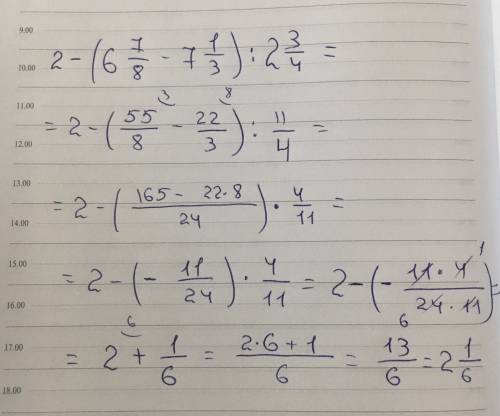 9.00
10.00 2 - (6 7/8 - 7 1/3) : 2 3/4 =
11.00
12.00 = 2 - (55/8 ³ - 22/3 ⁸) : 11/4 =
13.00
14.00 = 2 - ((165 - 22·8)/24) · 4/11 =
15.00
16.00 = 2 - (- 11/24) · 4/11 = 2 - (- (11 · 4 ¹)/(24 ₆ · 11)) =
17.00 = 2 ⁶ + 1/6 = (2·6+1)/6 = 13/6 = 2 1/6
18.00